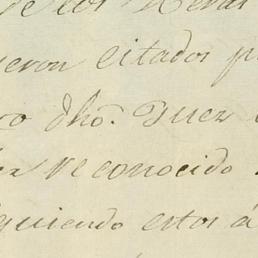 de los
ueron citados p
ro dho. Juez
ez reconocido
guiendo estos á